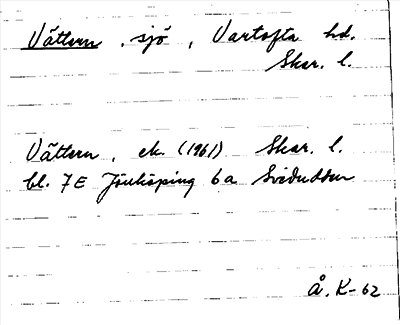 Vättern, sjö, Vartofta hd.
Skar. l.
Vättern, ek. (1961) Skar. l.
bl. 7E Jönköping 6a
Å. K-62